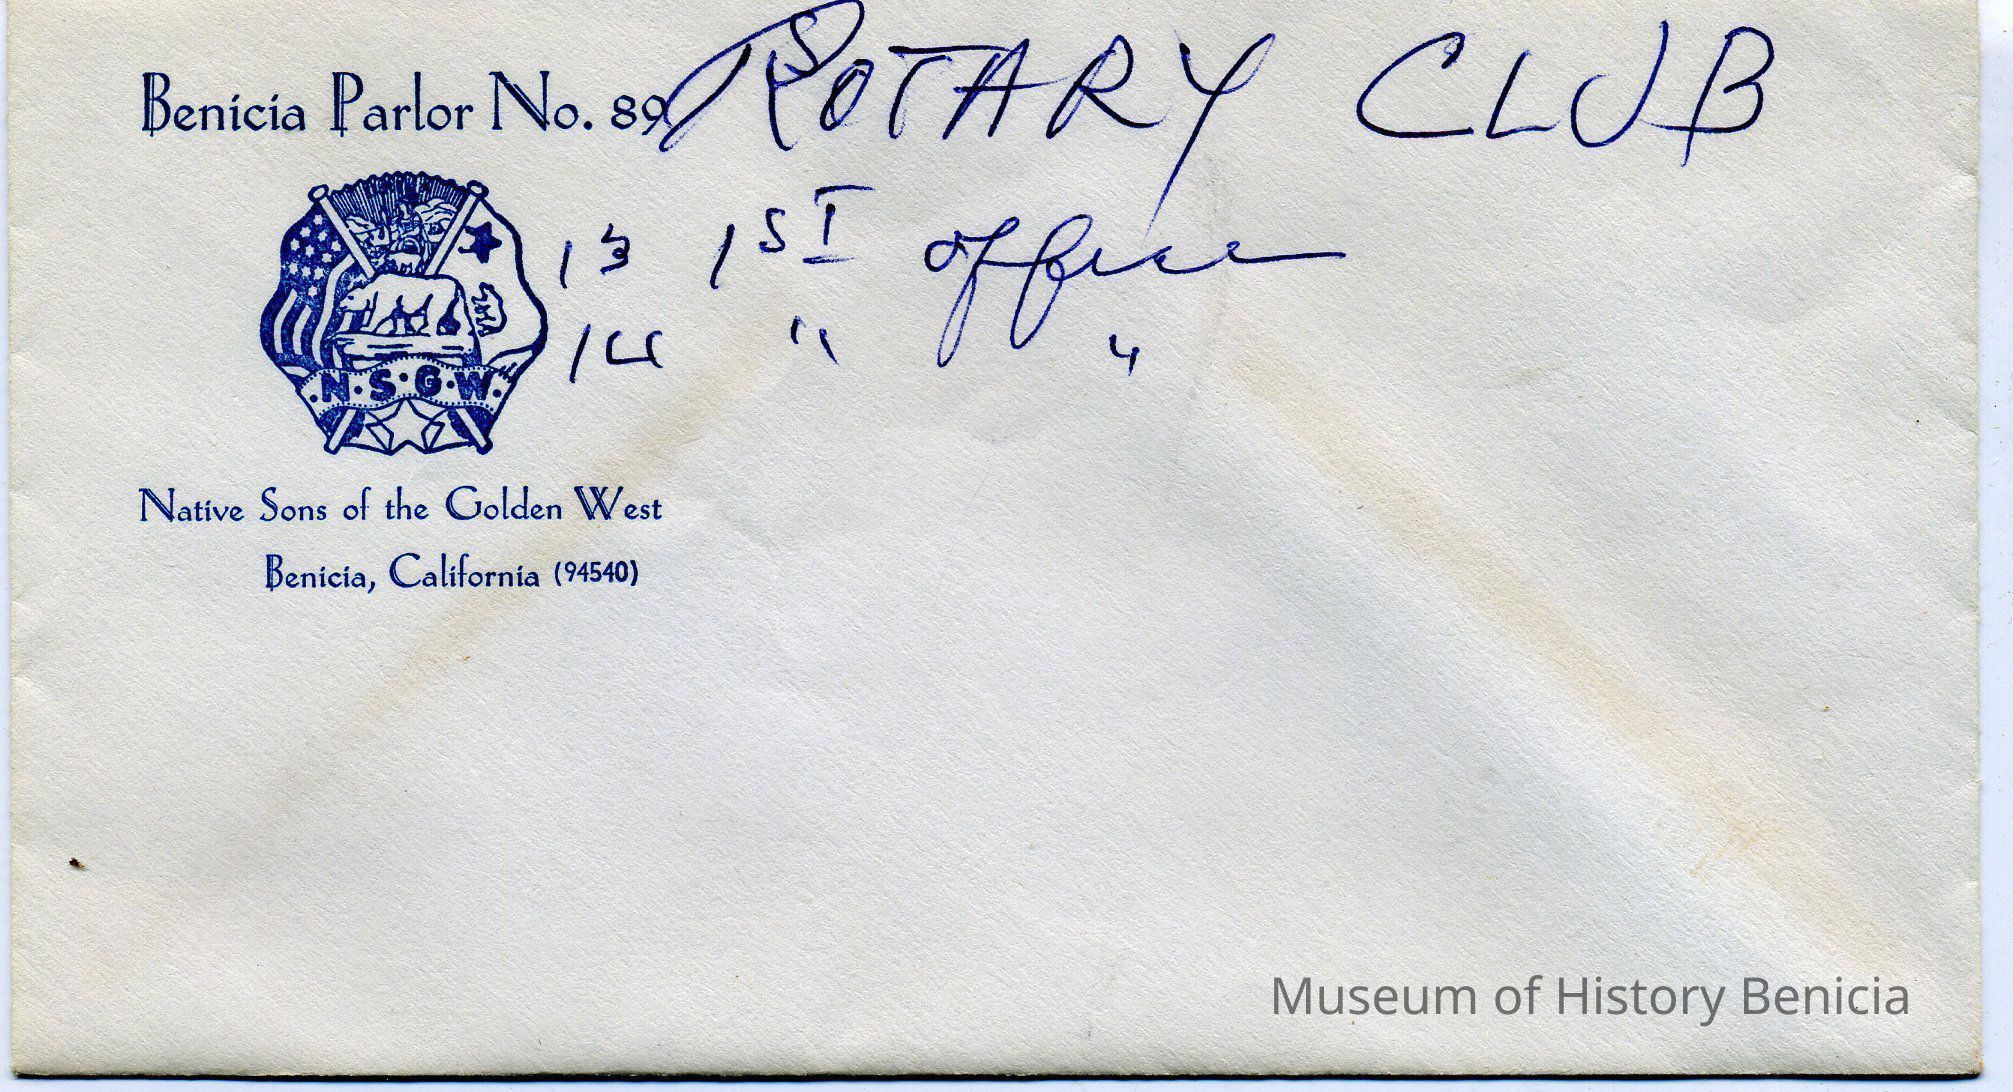 Benicia Parlor No. 89
ROTARY CLUB
13 1ST officer
14 " "
N·S·G·W·
Native Sons of the Golden West
Benicia, California (94540)
Museum of History Benicia